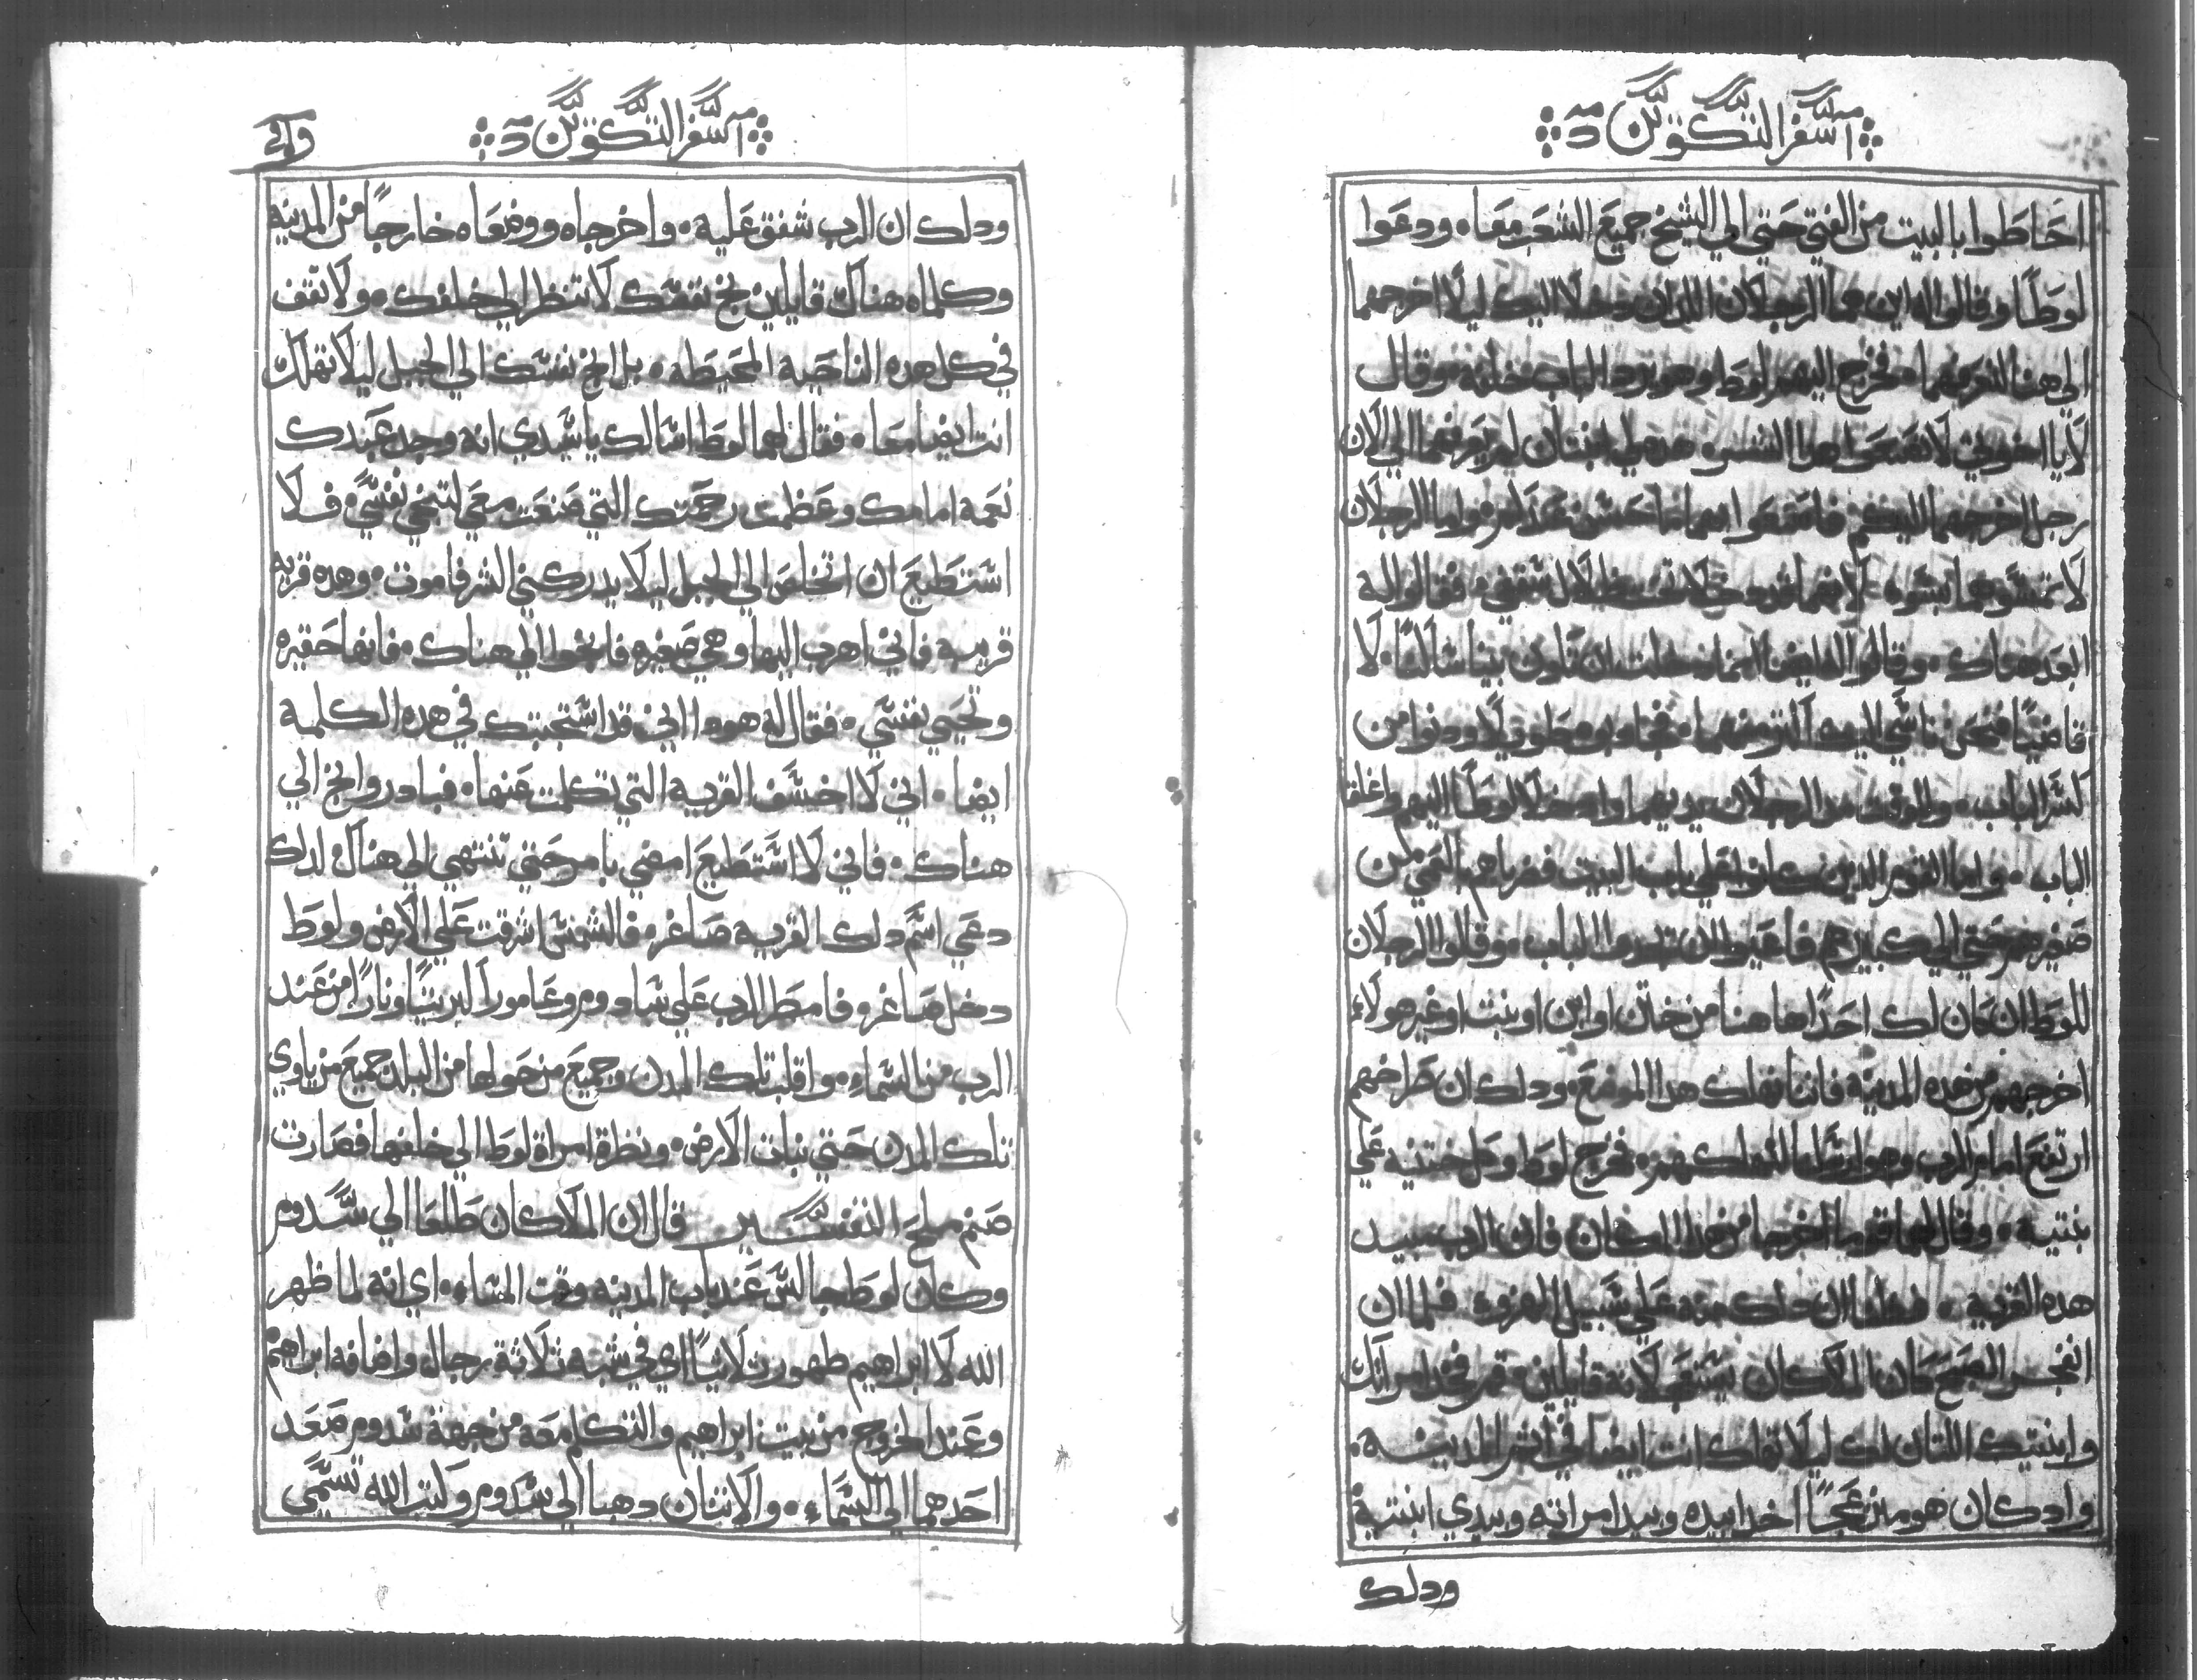 سفر التكوين
احاطوا بالبيت من الفتي حتي الي الشيخ جميع الشعب معا ودعوا
لوطا وقالوا له اين هما الرجلان اللذان دخلا اليك ليلا اخرجهما
الي هنا لنعرفهما فخرج اليهم لوط وهو يرد الباب خلفه وقال
لا يا اخوتي لا تصنعوا هدا الشر هده لي ابنتان لم يعرفهما الي الان
رجل اخرجهما اليكم فاصنعوا بهما كما يحسن عندكم واما الرجلان
لا تمسوهما بسوء لانهما قد دخلا تحت ظلال سقفي فقالوا له
ابعد هناك وقالوا له ايضا انما دخلت ان تكون بيننا ساكنا لا
قاضيا فنحن نسي اليك اكثر منهما لوط ودنوا من
كسر الباب الرجلان يديهما وادخلا لوطا اليهم واغلقا
الباب واما القوم الدين كانوا علي باب البيت فضرباهم بالعمي من
صغيرهم حتي الي كبيرهم فاعيوا ان يجدوا الباب وقالوا الرجلان
للوط ان كان لك احدا هاهنا من ختن او ابن او بنت او غير هولاء
اخرجهم من هده المدينة فاننا نهلك هدا الموضع ودلك ان صراخهم
ارتفع امام الرب وهو ارسلنا لنهلكهم فخرج لوط وكلم ختنيه علي
بنتيه وقال لهما قوما اخرجا من هدا المكان فان الرب مبيد
هده القريه فظنا ان دلك منه علي سبيل الهزوء فلما ان
انفجر الصبح كان الملاكان يستعجلانه قايلين قم فخد امراتك
وابنتيك اللتان لك ليلا تهلك انت ايضا في اثم المدينه
واد كان هو منزعجا اخدا بيده وبيد امراته وبيدي ابنتيه
ودلك
سفر التكوين
ودلك ان الرب شفق عليه واخرجاه ووضعاه خارجا من المدينه
وكلماه هناك قايلين نج نفسك لا تنظر الي خلفك ولا تقف
في كل هده الناحيه المحيطه بل انج نفسك الي الجبل ليلا تهلك
انت ايضا معا فقال لهما لوط اسالك يا سيدي انه وجد عبدك
نعمه امامك وعظمت رحمتك التي صنعت معي لتنجي نفسي فلا
استطيع ان اتخلص الي الجبل ليلا يدركني الشر فاموت وهده قريه
قريبه فاني اهرب اليها وهي صغيره فانجوا الي هناك فانها حقيره
وتحيي نفسي فقال له هودا اني قد استجبتك في هده الكلمه
ايضا اني لا اخسف القريه التي تكلمت عنها فبادر وانج الي
هناك فاني لا استطيع امضي بامر حتي تنتهي الي هناك لدلك
دعي اسم دلك القريه صاغر فالشمس اشرقت علي الارض ولوط
دخل صاغر وفامطر الرب علي سادوم وعامورا كبريتا ونارا من عند
الرب من السماء واقلب تلك المدن وجميع من حولها من البلد جميع من ياوي
تلك المدن حتي نبات الارض ونظرة امراة لوط الي خلفها فصارت
صنم ملح التفسير قال ان الملاكان طلعا الي سدوم
وكان لوط جالس عند باب المدينه وقت المساء اي انه لما ظهر
الله لابراهيم ظهور ثلاثيا اي في شبه ثلاثة رجال واضافه ابراهيم
وعند الخروج من بيت ابراهيم والتكلم معه من جهة سدوم صعد
احدهما الي السماء والاثنان دهبا الي سدوم وكتب الله تسمي